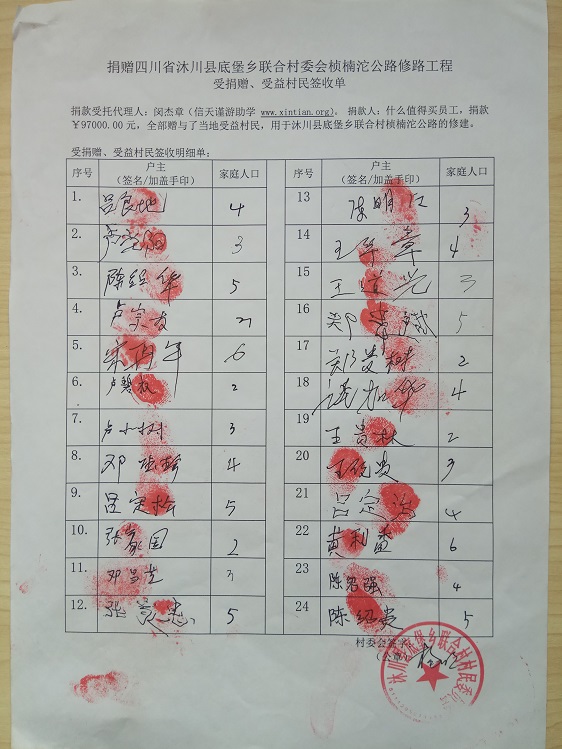 捐赠四川省沐川县底堡乡联合村委会桢楠沱公路修路工程
受捐赠、受益村民签收单
捐款受托代理人：闵杰章（信天谨游助学 www.xintian.org)。 捐款人：什么值得买员工，捐款
￥97000.00 元，全部赠与了当地受益村民，用于沐川县底堡乡联合村桢楠沱公路的修建。
受捐赠、受益村民签收明细单：
序号 户主（签名/加盖手印） 家庭人口
1. 吕良地 4
2. 3
3. 陈绍华 5
4. 卢宗友
5. 6
6. 卢碧权 2
7. 卢小树 3
8. 邓 4
9. 吕定松 5
10. 张家国 2
11. 邓
12. 张 忠 5
序号 户主（签名/加盖手印） 家庭人口
13 陈明江 3
14 王华章 4
15 王 3
16 郑 5
17 郑贵树 2
18 4
19 王贵林 2
20 王 贵 3
21 吕定 4
22 黄利 6
23 陈绍强 4
24 陈绍贵 5
村委会签字
（公章）
沐川县底堡乡联合村村民委员会